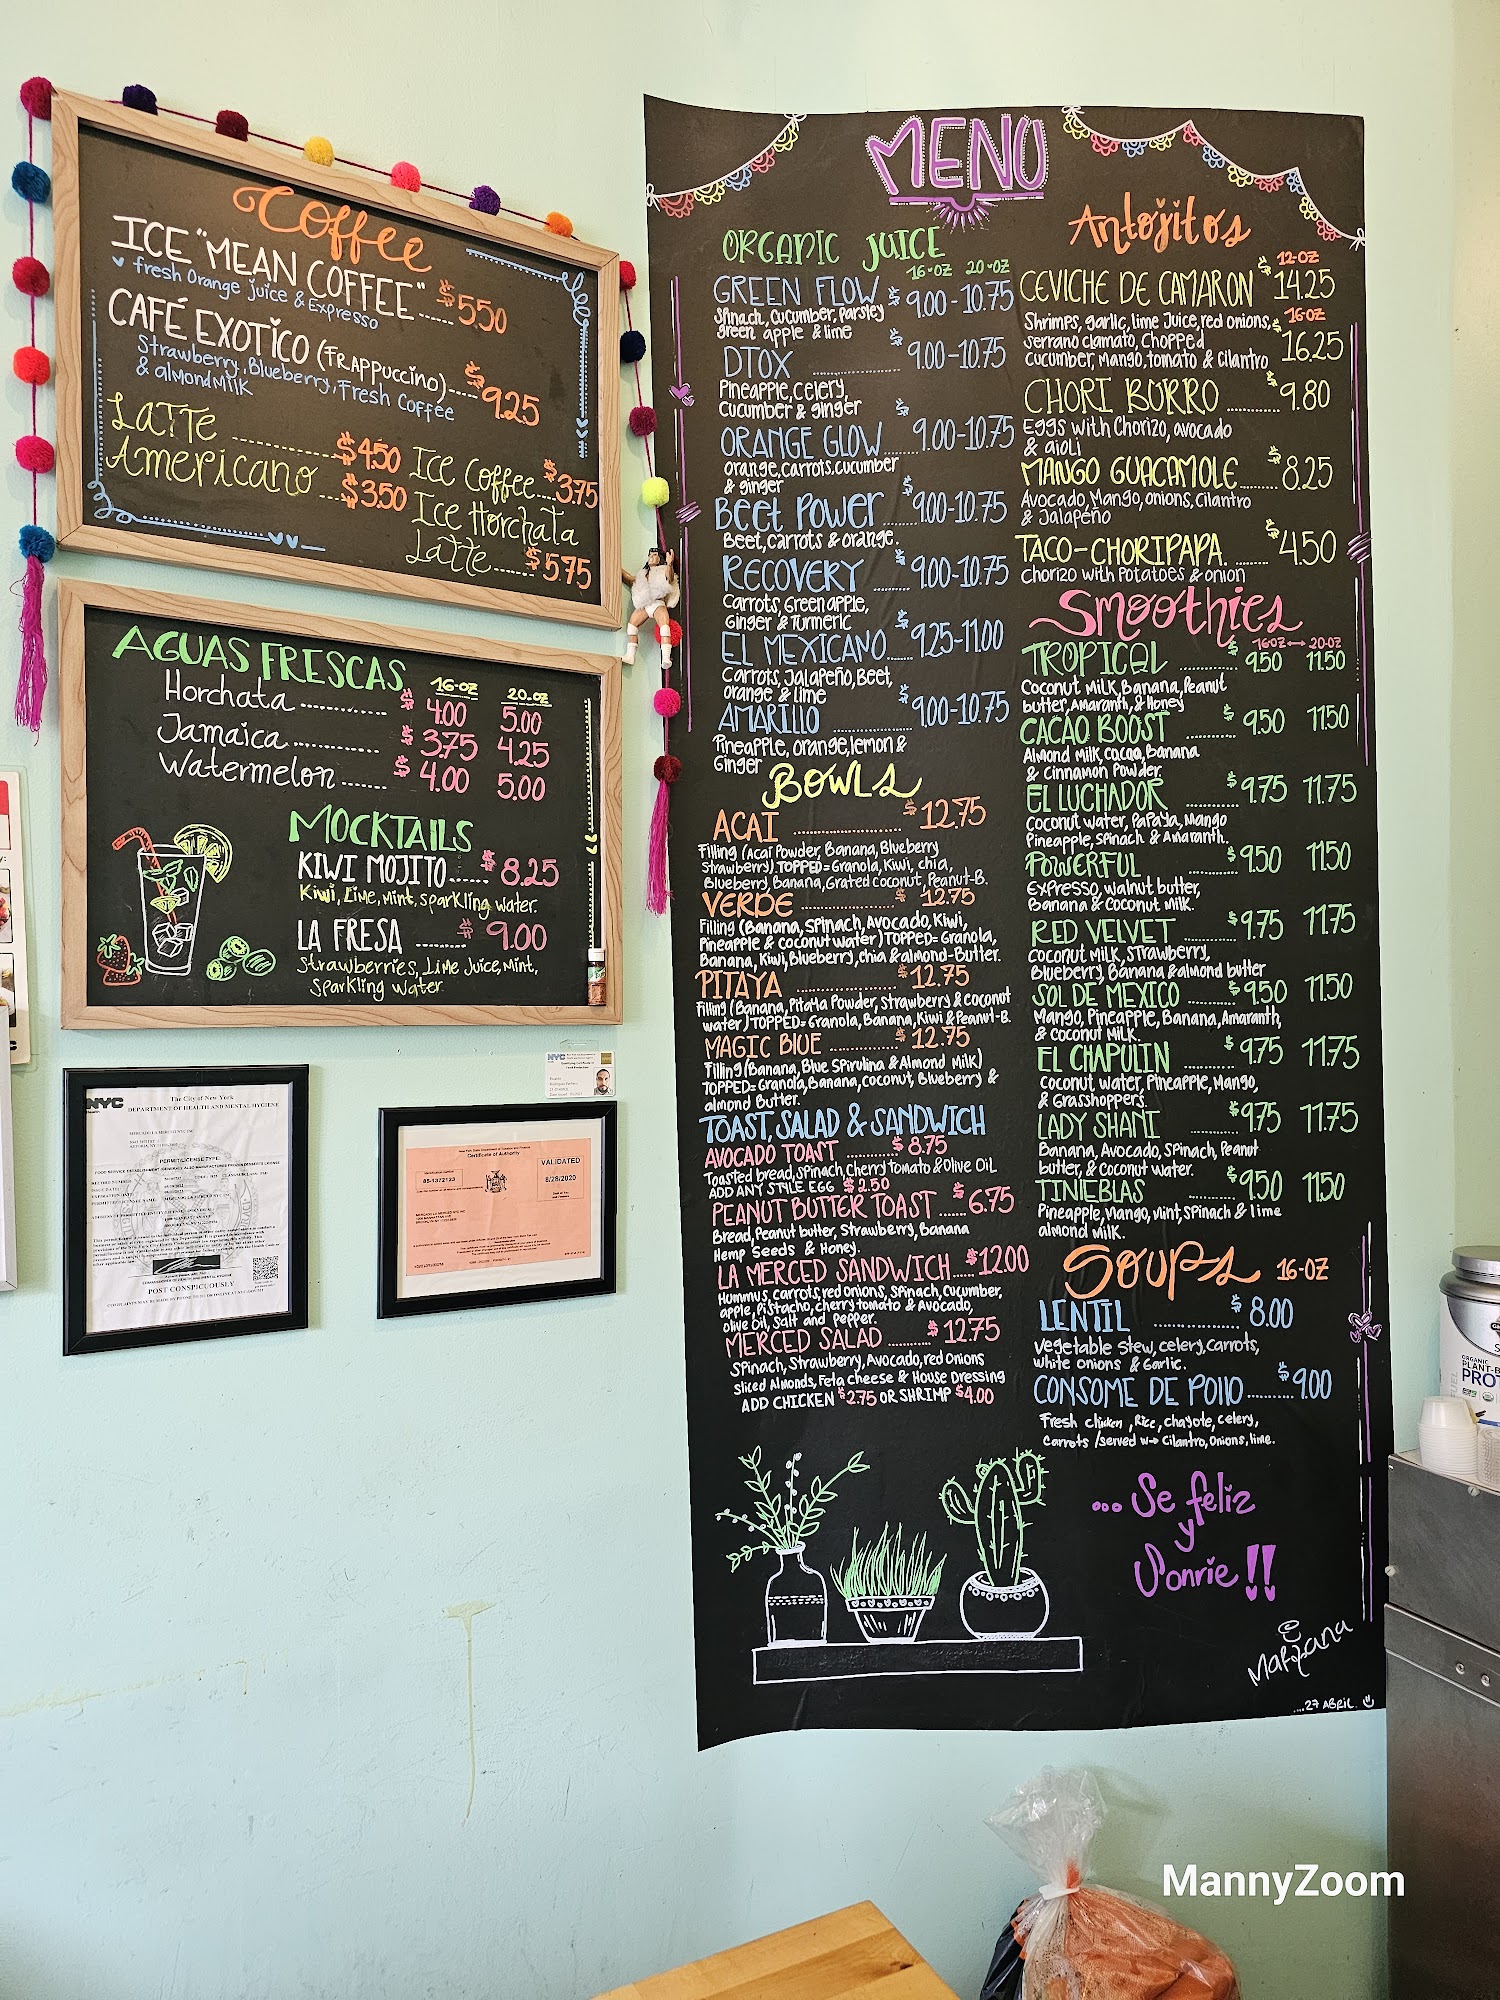 Coffee
ICE "MEAN COFFEE" ...... $5.50
fresh Orange juice & Expresso
CAFÉ EXOTICO (FRAPPUCCINO)..... $9.25
Strawberry, Blueberry, Fresh Coffee
& almond MILK
LATTE .............. $4.50
Americano .... $3.50
Ice Coffee... $3.75
Ice Horchata
Latte..... $5.75
AGUAS FRESCAS
16-OZ 20-OZ
Horchata ............ $4.00 5.00
Jamaica ............ $3.75 4.25
Watermelon ....... $4.00 5.00
MOCKTAILS
KIWI MOJITO..... $8.25
Kiwi, Lime, Mint, Sparkling Water.
LA FRESA ....... $9.00
Strawberries, Lime Juice, Mint,
Sparkling Water.
NYC
The City of New York
DEPARTMENT OF HEALTH AND MENTAL HYGIENE
PERMIT/LICENSE TYPE:
POST CONSPICUOUSLY
NYC
New York State Department of Taxation and Finance
Certificate of Authority
VALIDATED
8/28/2020
MENU
ORGANIC JUICE
16-OZ 20-OZ
GREEN FLOW $9.00-10.75
Spinach, Cucumber, Parsley
green apple & lime
DTOX ............ $9.00-10.75
Pineapple, Celery,
Cucumber & ginger
ORANGE GLOW.... $9.00-10.75
Orange, Carrots, Cucumber
& ginger
BEET POWER ...... $9.00-10.75
Beet, carrots & orange.
RECOVERY ....... $9.00-10.75
Carrots, Green apple,
Ginger & Turmeric
EL MEXICANO..... $9.25-11.00
Carrots, Jalapeño, Beet,
orange & lime
AMARILLO .............. $9.00-10.75
Pineapple, orange, lemon &
Ginger
BOWLS
ACAI ................. $12.75
Filling (Acaí Powder, Banana, Blueberry
Strawberry). TOPPED= Granola, Kiwi, chia,
Blueberry, Banana, Grated coconut, Peanut-B.
VERDE ................. $12.75
Filling (Banana, Spinach, Avocado, Kiwi,
Pineapple & coconut water) TOPPED= Granola,
Banana, Kiwi, Blueberry, chia & almond-Butter.
PITAYA ................ $12.75
Filling (Banana, Pitaya Powder, Strawberry & coconut
water) TOPPED= Granola, Banana, Kiwi & Peanut-B.
MAGIC BLUE .......... $12.75
Filling (Banana, Blue Spirulina & Almond Milk)
TOPPED= Granola, Banana, coconut, Blueberry &
almond Butter.
TOAST, SALAD & SANDWICH
AVOCADO TOAST ...... $8.75
Toasted bread, Spinach, cherry tomato & Olive OIL
ADD ANY STYLE EGG $2.50
PEANUT BUTTER TOAST ..... $6.75
Bread, Peanut butter, Strawberry, Banana
Hemp Seeds & Honey.
LA MERCED SANDWICH..... $12.00
Hummus, carrots, red onions, Spinach, cucumber,
apple, Pistacho, cherry tomato & Avocado,
olive oil, Salt and Pepper.
MERCED SALAD ....... $12.75
Spinach, Strawberry, Avocado, red onions
sliced Almonds, Feta cheese & House Dressing
ADD CHICKEN $2.75 OR SHRIMP $4.00
Antojitos
CEVICHE DE CAMARON $ 12-OZ 14.25
Shrimps, garlic, lime Juice, red onions, $ 16-OZ
Serrano clamato, Chopped
cucumber, Mango, tomato & Cilantro 16.25
CHORI BURRO .......... $9.80
Eggs with Chorizo, avocado
& aioli
MANGO GUACAMOLE........ $8.25
Avocado, Mango, onions, Cilantro
& Jalapeño
TACO-CHORIPAPA. ....... $4.50
Chorizo with Potatoes & onion
Smoothies
16-OZ 20-OZ
TROPICAL .......... $9.50 11.50
Coconut Milk, Banana, Peanut
butter, Amaranth, & Honey
CACAO BOOST ....... $9.50 11.50
Almond Milk, Cacao, Banana
& Cinnamon Powder.
EL LUCHADOR ......... $9.75 11.75
Coconut Water, Papaya, Mango
Pineapple, Spinach & Amaranth.
POWERFUL .......... $9.50 11.50
Expresso, walnut butter,
Banana & Coconut Milk.
RED VELVET ......... $9.75 11.75
Coconut Milk, Strawberry,
Blueberry, Banana & almond butter
SOL DE MEXICO ....... $9.50 11.50
Mango, Pineapple, Banana, Amaranth,
& Coconut Milk.
EL CHAPULIN ......... $9.75 11.75
Coconut water, Pineapple, Mango,
& Grasshoppers.
LADY SHANI ......... $9.75 11.75
Banana, Avocado, Spinach, Peanut
butter, & Coconut water.
TINIEBLAS .......... $9.50 11.50
Pineapple, Mango, Mint, Spinach & lime
almond Milk.
SOUPS 16-OZ
LENTIL .............. $8.00
Vegetable Stew, celery, carrots,
white onions & Garlic.
CONSOME DE POLLO ........ $9.00
Fresh chicken, Rice, chayote, celery,
Carrots /Served w→ Cilantro, Onions, lime.
... Se feliz
y
Sonrie!!
....27 ABRIL.
ORGANIC
PLANT-B
PRO
MannyZoom